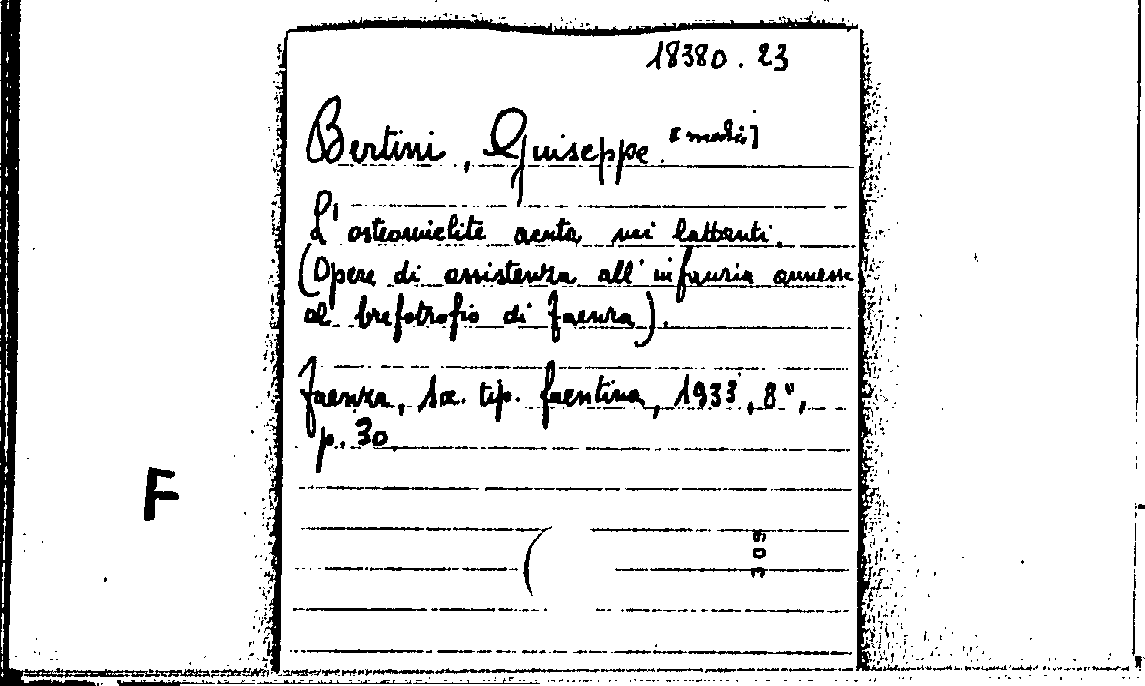 18380.23
Bertini, Giuseppe. [medic]
L'osteomielite acuta nei lattanti.
(Opere di assistenza all'infanzia annesse
al brefotrofio di Faenza).
Faenza, Soc. tip. faentina, 1933, 8°,
p. 30
F
308